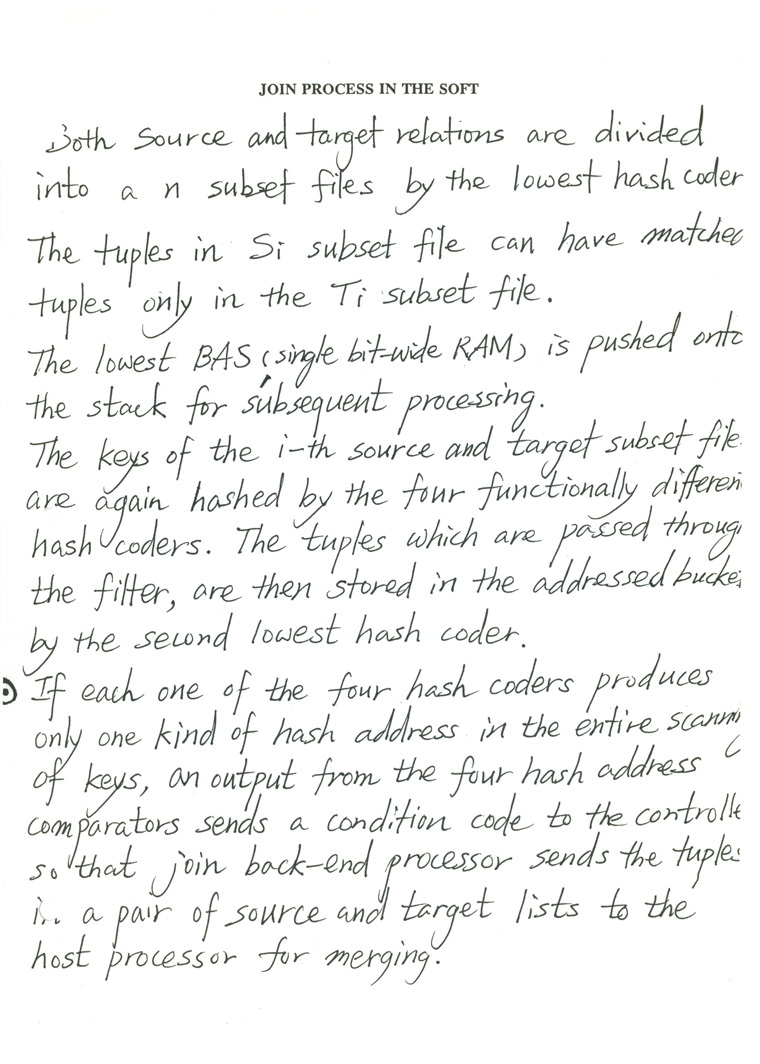 JOIN PROCESS IN THE SOFT
Both source and target relations are divided
into a n subset files by the lowest hash coder
The tuples in Si subset file can have matched
tuples only in the Ti subset file.
The lowest BAS (single bit-wide RAM) is pushed onto
the stack for subsequent processing.
The keys of the i-th source and target subset file
are again hashed by the four functionally differen
hash coders. The tuples which are passed throug
the filter, are then stored in the addressed bucke
by the second lowest hash coder.
If each one of the four hash coders produces
only one kind of hash address in the entire scann
of keys, an output from the four hash address
comparators sends a condition code to the controlle
so that join back-end processor sends the tuples
in a pair of source and target lists to the
host processor for merging.